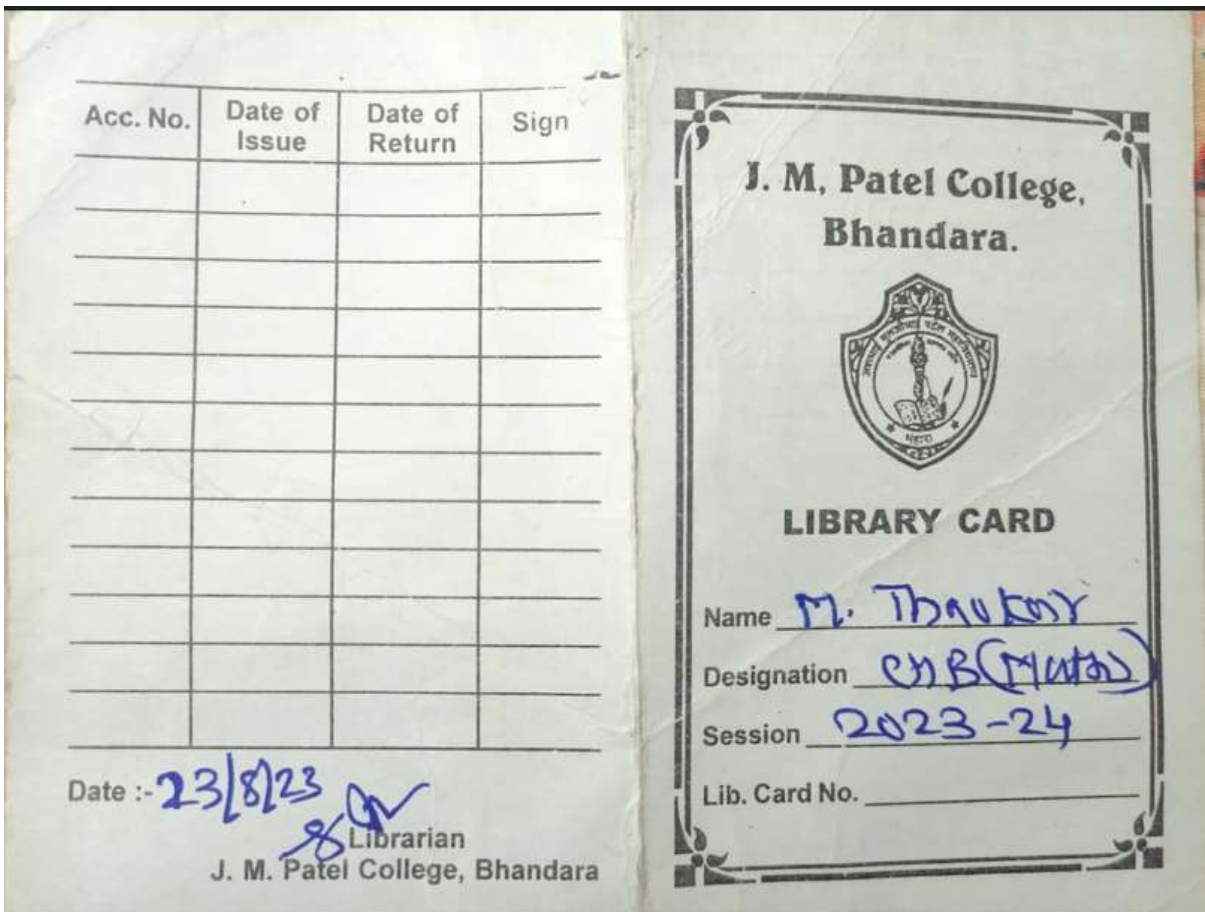 Acc. No. Date of Issue Date of Return Sign
Date :- 23/8/23
Librarian
J. M. Patel College, Bhandara
J. M, Patel College,
Bhandara.
भंडारा
LIBRARY CARD
Name M. Thaukar
Designation CHB (Maths)
Session 2023-24
Lib. Card No.